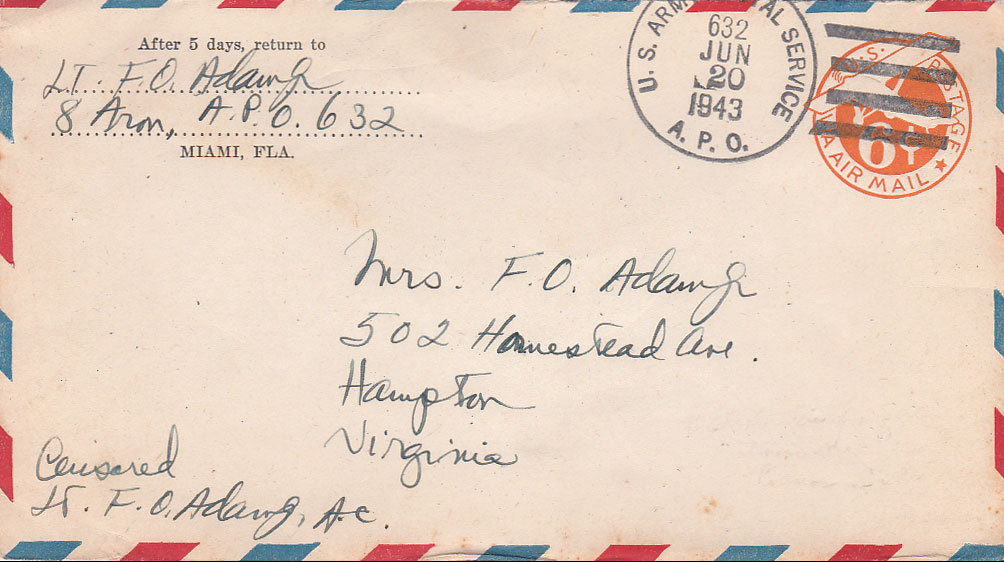 After 5 days, return to
Lt. F.O. Adams Jr
8 Aron, A.P.O. 632
MIAMI, FLA.
U. S. ARMY POSTAL SERVICE
632
JUN
20
1943
A. P. O.
U.S. POSTAGE
VIA AIR MAIL
6¢
Mrs. F.O. Adams Jr
502 Homestead Ave.
Hampton
Virginia
Censored
Lt. F.O. Adams Jr, A.C.